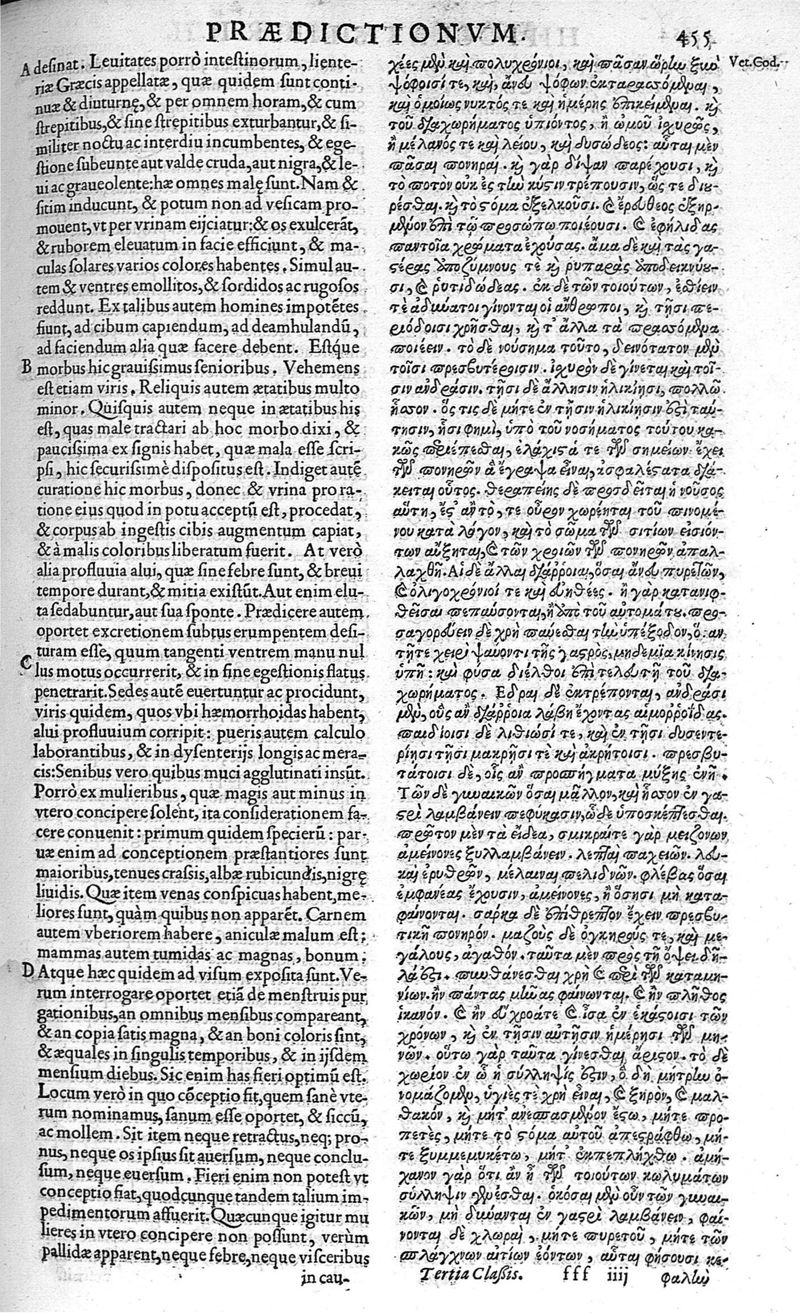 PRÆDICTIONVM. 455
A desinat. Leuitates porrò intestinorum, liente-
riæ Græcis appellatæ, quæ quidem sunt conti-
nuæ & diuturnę, & per omnem horam, & cum
strepitibus, & sine strepitibus exturbantur, & si-
militer noctu ac interdiu incumbentes, & ege-
stione subeunte aut valde cruda, aut nigra, & le-
ui ac graueolente: hæ omnes malę sunt. Nam &
sitim inducunt, & potum non ad vesicam pro-
mouent, vt per vrinam eijciatur: & os exulcerāt,
& ruborem eleuatum in facie efficiunt, & ma-
culas solares varios colores habentes. Simul au-
tem & ventres emollitos, & sordidos ac rugosos
reddunt. Ex talibus autem homines impotētes
fiunt, ad cibum capiendum, ad deamhulandū,
ad faciendum alia quæ facere debent. Estq́ue
B morbus hic grauissimus senioribus. Vehemens
est etiam viris. Reliquis autem ætatibus multo
minor. Quisquis autem neque in ætatibus his
est, quas male tractari ab hoc morbo dixi, &
paucissima ex signis habet, quæ mala esse scri-
psi, hic securissimè dispositus est. Indiget autē
curatione hic morbus, donec & vrina pro ra-
tione eius quod in potu acceptū est, procedat,
& corpus ab ingestis cibis augmentum capiat,
& à malis coloribus liberatum fuerit. At verò
alia profluuia alui, quæ sine febre sunt, & breui
tempore durant, & mitia existūt. Aut enim elu-
ta sedabuntur, aut sua sponte. Prædicere autem
oportet excretionem subtus erumpentem desi-
turam esse, quum tangenti ventrem manu nul
C lus motus occurrerit, & in fine egestionis flatus
penetrarit. Sedes autē euertuntur ac procidunt,
viris quidem, quos vbi hæmorrhoidas habent,
alui profluuium corripit: pueris autem calculo
laborantibus, & in dysenterijs longis ac mera-
cis: Senibus vero quibus muci agglutinati insūt.
Porrò ex mulieribus, quæ magis aut minus in
vtero concipere solent, ita considerationem fa-
cere conuenit: primum quidem specierū: par-
uæ enim ad conceptionem præstantiores sunt
maioribus, tenues crassis, albæ rubicundis, nigrę
liuidis. Quæ item venas conspicuas habent, me-
liores sunt, quàm quibus non apparēt. Carnem
autem vberiorem habere, aniculæ malum est:
mammas autem tumidas ac magnas, bonum.
D Atque hæc quidem ad visum exposita sunt. Ve-
rum interrogare oportet etiā de menstruis pur
gationibus, an omnibus mensibus compareant,
& an copia satis magna, & an boni coloris sint,
& æquales in singulis temporibus, & in ijsdem
mensium diebus. Sic enim has fieri optimū est.
Locum verò in quo cōceptio fit, quem sanè vte-
rum nominamus, sanum esse oportet, & siccū,
ac mollem. Sit item neque retractus, neq; pro-
nus, neque os ipsius sit auersum, neque conclu-
sum, neque euersum. Fieri enim non potest vt
conceptio fiat, quodcunque tandem talium im-
pedimentorum affuerit. Quæcunque igitur mu
lieres in vtero concipere non possunt, verùm
pallidæ apparent, neque febre, neque visceribus
in cau-
χέες μὲν καὶ πολυχρόνιοι, καὶ πᾶσαν ὥρην ξὺν Vet. Cod.
ψόφοισί τε, καὶ, ἄνευ ψόφων ἐκταρασσόμεναι,
καὶ ὁμοίως νυκτός τε καὶ ἡμέρης ἐπικείμεναι. καὶ
τοῦ διαχωρήματος ὑπιόντος, ἢ ὠμοῦ ἰχυρῶς,
ἢ μέλανός τε καὶ λείου, καὶ δυσώδεος: αὗται μὲν
πᾶσαι πονηραί. καὶ γὰρ δίψαν παρέχουσι, καὶ
τὸ ποτὸν οὐκ ἐς τὴν κύστιν τρέπουσιν, ὥς τε διου-
ρέεσθαι. καὶ τὸ στόμα ἐξελκοῦσι. καὶ ἔρευθεος ἐξηρ-
μένον ἐπὶ τῷ προσώπῳ ποιέουσι. καὶ ἐφηλίδας
παντοῖα χρώματα ἐχούσας. ἅμα δὲ καὶ τὰς γα-
στέρας ὑποζύμνους τε καὶ ῥυπαρὰς ὑποδεικνύου-
σι, καὶ ῥυτιδώδεας. ἐκ δὲ τῶν τοιούτων, ἐσθίειν
τὲ ἀδύνατοι γίνονται οἱ ἄνθρωποι, καὶ τῇσι πε-
ριόδοισι χρῆσθαι, καὶ τ' ἄλλα τὰ πρασσόμενα
ποιέειν. τὸ δὲ νούσημα τοῦτο, δεινότατον μὲν
τοῖσι πρεσβυτέροισιν. ἰσχυρὸν δὲ γίνεται καὶ τοῖ-
σιν ἀνδράσιν. τῇσι δὲ ἄλλῃσιν ἡλικίῃσι, πολλῷ
ἧσσον. ὅς τις δὲ μήτε ἐν τῇσιν ἡλικίῃσιν ἐστὶ ταύ-
τῃσιν, ᾗσί φημι, ὑπὸ τοῦ νοσήματος τούτου κα-
κῶς περιέπεσθαι, ἐλάχιστά τε τῶν σημείων ἔχει
τῶν πονηρῶν ἃ ἔγραψα εἶναι, ἀσφαλέστατα διά-
κειται οὗτος. θεραπείης δὲ προσδεῖται ἡ νοῦσος
αὕτη, ἐς ἂν τό, τε οὖρον χωρέηται τοῦ πινομέ-
νου κατὰ λόγον, καὶ τὸ σῶμα τῶν σιτίων εἰσιόν-
των αὔξηται, καὶ τῶν χροιῶν τῶν πονηρῶν ἀπαλ-
λαχθῇ. Αἱ δὲ ἄλλαι διάρροιαι, ὅσαι ἄνευ πυρετῶν,
καὶ ὀλιγοχρόνιοί τε καὶ εὐήθεες. ἢ γὰρ κατανιφ-
θεῖσαι πεπαύσονται, ἢ ὑπὸ τοῦ αὐτομάτου. προ-
σαγορεύειν δὲ χρὴ παύεσθαι τὴν ὑπέξοδον, ὅταν
τῇ τε χειρὶ ψαύοντι τῆς γαστρὸς, μηδεμία κίνησις
ὑπῇ: καὶ φῦσα διέλθοι ἐπὶ τελευτῇ τοῦ δια-
χωρήματος. Ἕδραι δὲ ἐκτρέπονται, ἀνδράσι
μὲν, οὓς ἂν διάρροια λάβῃ ἔχοντας αἱμορροΐδας.
παιδίοισι δὲ λιθιῶσί τε, καὶ ἐν τῇσι δυσεντε-
ρίῃσι τῇσι μακρῇσί τὲ καὶ ἀκρήτοισι. πρεσβυ-
τάτοισι δὲ, οἷς ἂν προσπήγματα μύξης ἐνῇ.
Τῶν δὲ γυναικῶν ὅσαι μᾶλλον, καὶ ἧσσον ἐν γα-
στρὶ λαμβάνειν πεφύκασιν, ὧδε ὑποσκέπτεσθαι.
πρῶτον μὲν τὰ εἴδεα, σμικραί τε γὰρ μειζόνων
ἀμείνονες ξυλλαμβάνειν. λεπταὶ παχειῶν. λευ-
καὶ ἐρυθρῶν, μέλαιναι πελιδνῶν. φλέβας ὅσαι
ἐμφανέας ἔχουσιν, ἀμείνονες, ἢ ὅσῃσι μὴ κατα-
φαίνονται. σάρκα δὲ ἐπίθρεπτον ἔχειν πρεσβυ-
τικῇ πονηρόν. μαζοὺς δὲ ὀγκηροὺς τε, καὶ με-
γάλους, ἀγαθόν. ταῦτα μὲν πρὸς τῇ ὄψει δῆ-
λά ἐστι. πυθάνεσθαι χρὴ καὶ περὶ τῶν καταμη-
νίων. ἢν πάντας μῆνας φαίνωνται. καὶ ἢν πλῆθος
ἱκανόν. καὶ ἢν εὔχροά τε καὶ ἴσα ἐν ἑκάστοισι τῶν
χρόνων, καὶ ἐν τῇσιν αὐτῇσιν ἡμέρῃσι τῶν μη-
νῶν. οὕτω γὰρ ταῦτα γίνεσθαι ἄριστον. τὸ δὲ
χωρίον ἐν ᾧ ἡ σύλληψίς ἐστιν, ὃ δὴ μήτρην ὀ-
νομάζομεν, ὑγιές τε χρὴ εἶναι, καὶ ξηρὸν, καὶ μαλ-
θακόν, καὶ μήτ' ἀνεσπασμένον ἔσω, μήτε προ-
πετὲς, μήτε τὸ στόμα αὐτοῦ ἀπεστράφθω, μή-
τε ξυμμεμυκέτω, μήτ' ἐκπεπλήχθω. ἀμή-
χανον γὰρ ὅτι ἂν ᾖ τῶν τοιούτων κωλυμάτων
σύλληψιν γενέσθαι. ὁκόσαι μὲν οὖν τῶν γυναι-
κῶν, μὴ δύνανται ἐν γαστρὶ λαμβάνειν, φαί-
νονται δὲ χλωραὶ, μήτε πυρετοῦ, μήτε τῶν
σπλάγχνων αἰτίων ἐόντων, αὗται φήσουσι κε-
Tertia Classis. fff iiij φαλὴν